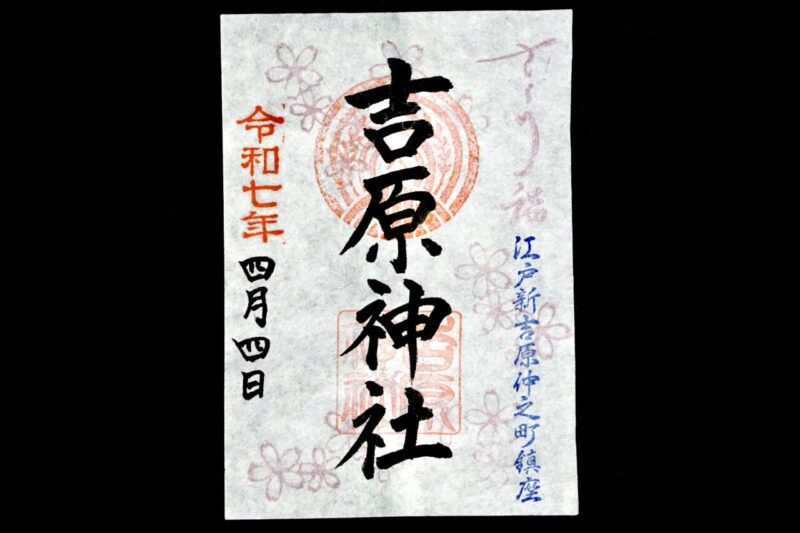 江戸新吉原仲之町鎮座
吉原神社
令和七年
四月四日